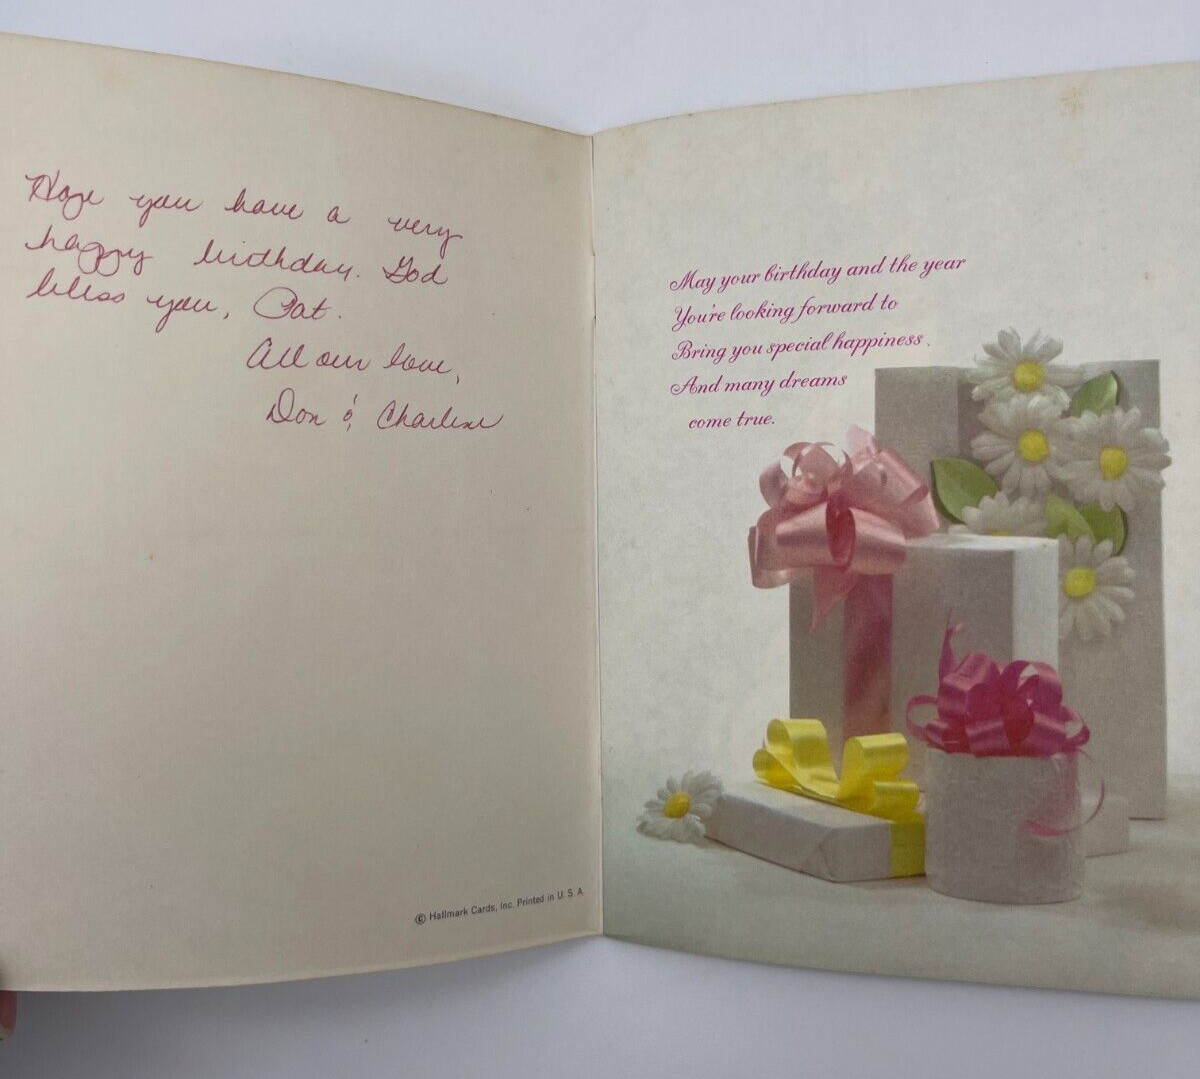 Hope you have a very
happy birthday. God
bless you, Pat.
All our love,
Don & Charlene
© Hallmark Cards, Inc. Printed in U. S. A.
May your birthday and the year
You're looking forward to
Bring you special happiness
And many dreams
come true.